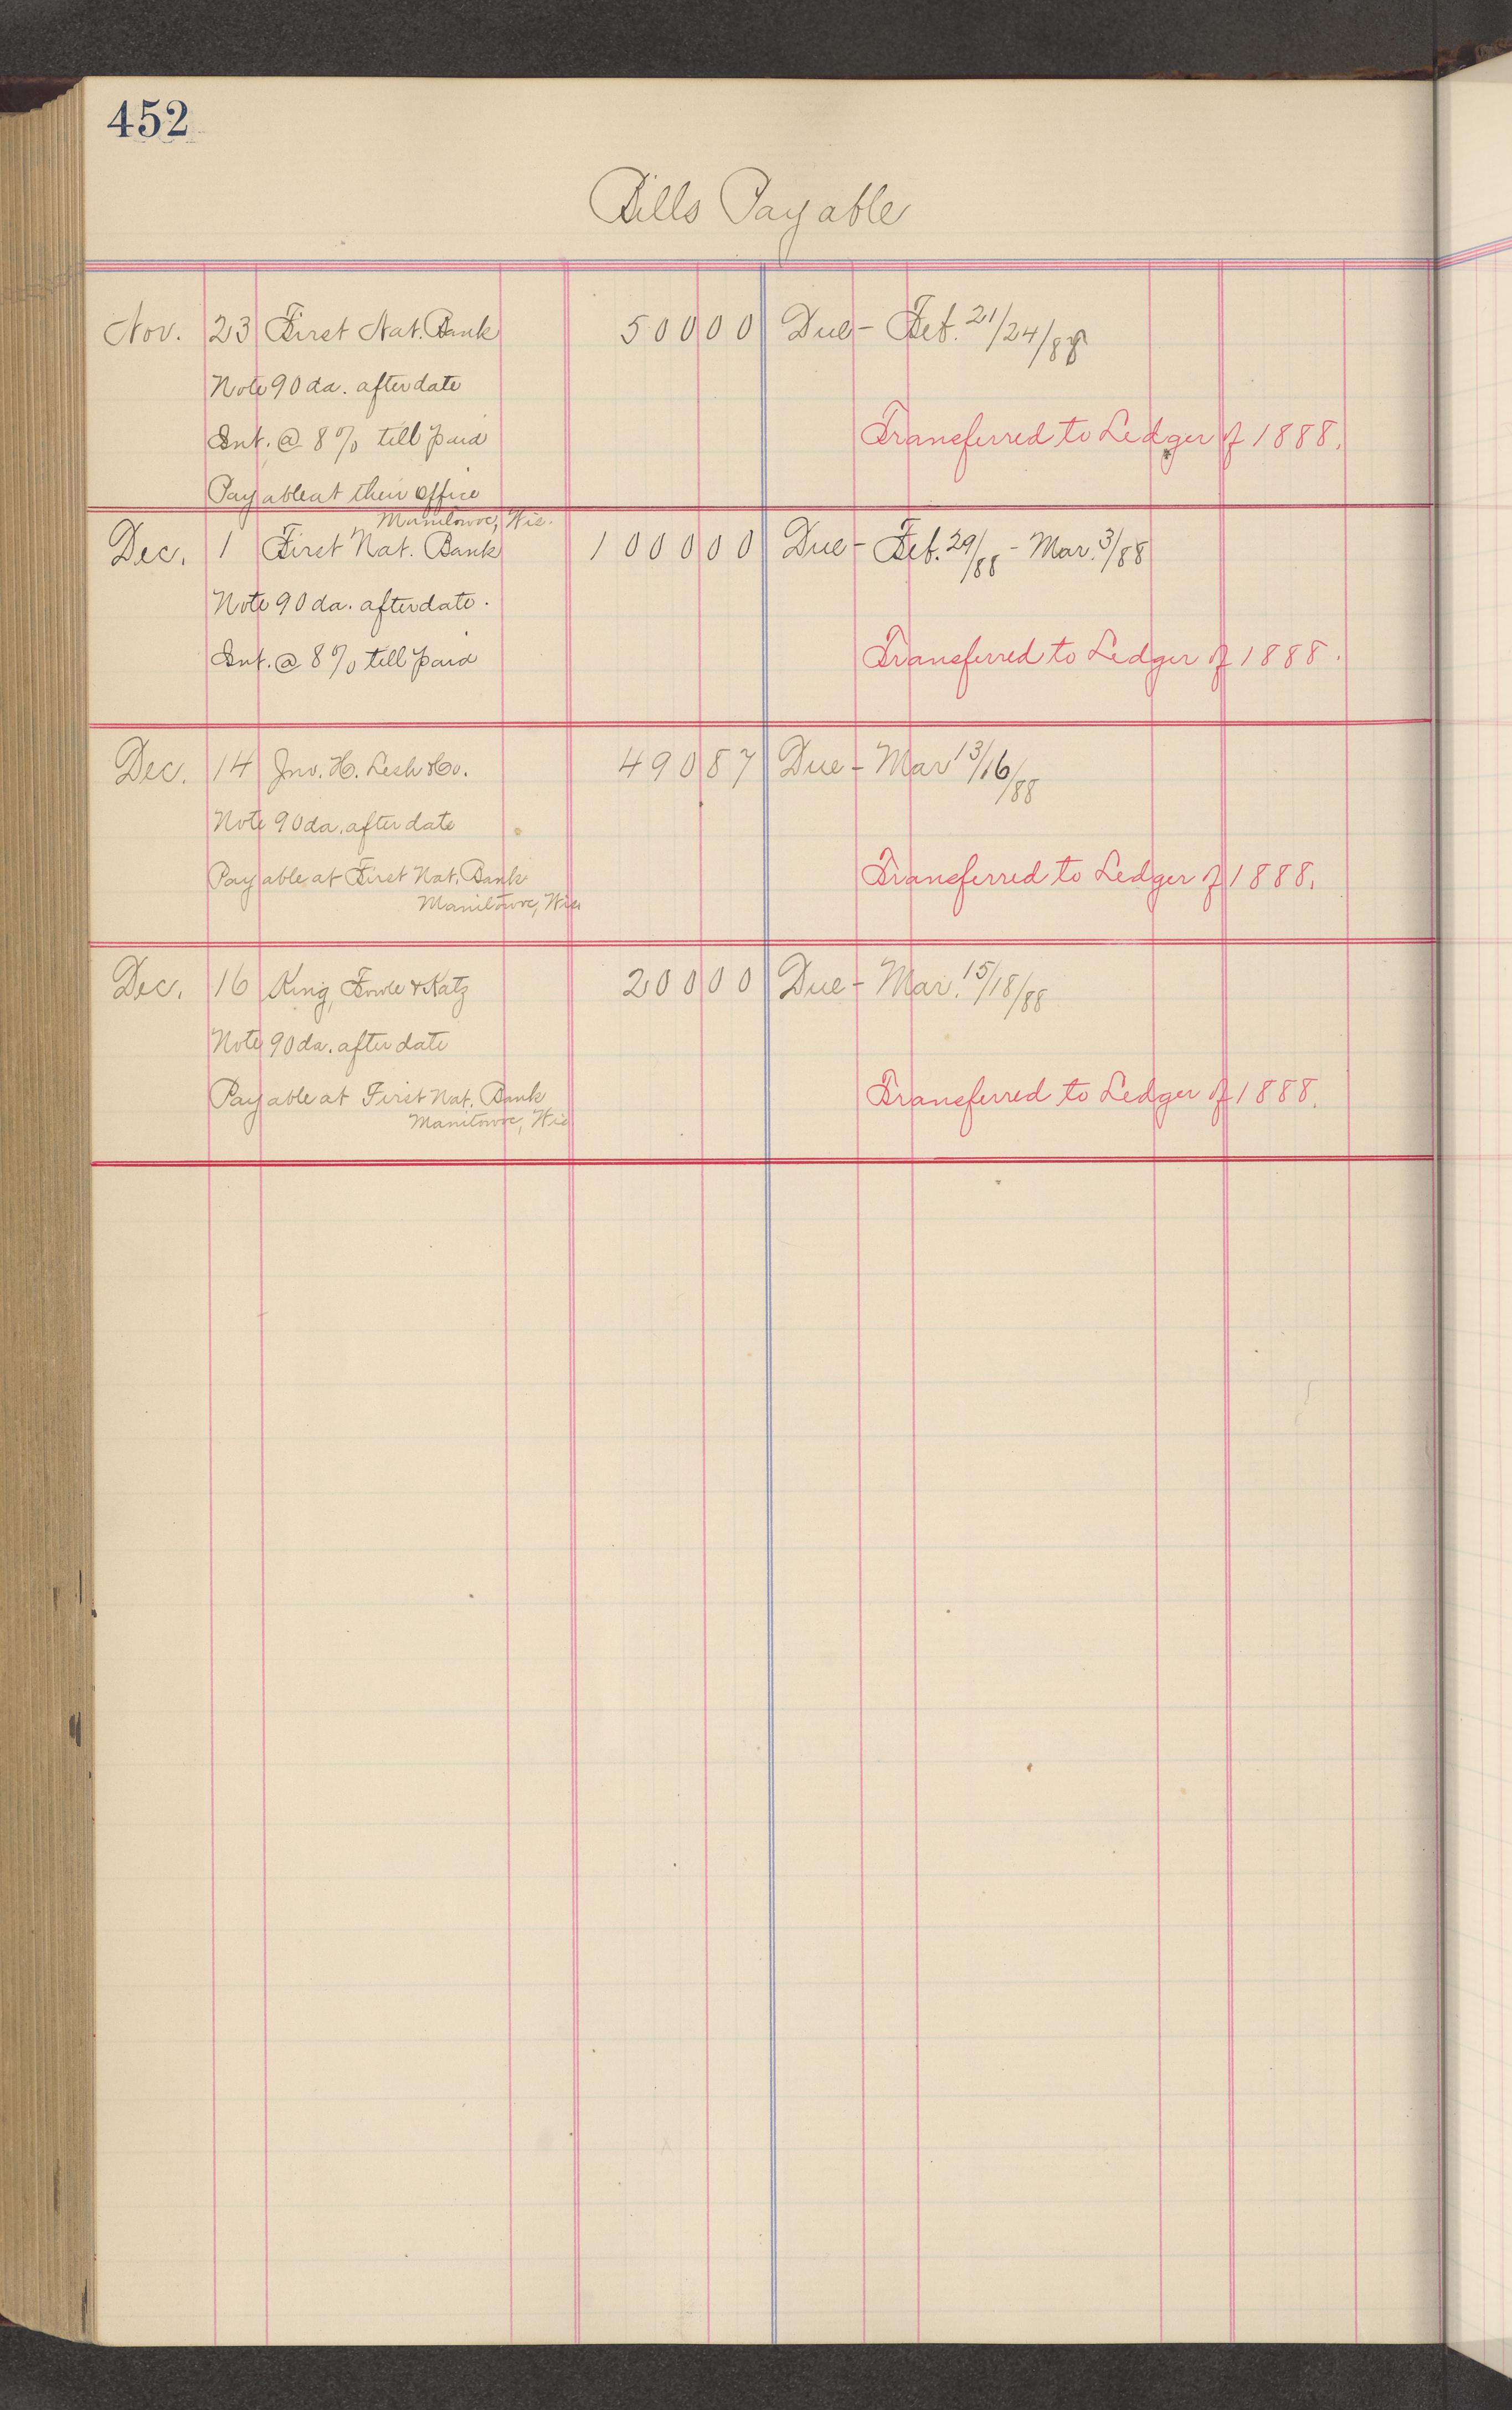 452
Bills Payable
Nov. 23 First Nat. Bank 500 00 Due - Feb. 21/24/88
Note 90 da. after date
Int. @ 8% till paid Transferred to Ledger of 1888.
Payable at their office
Manitowoc, Wis.
Dec. 1 First Nat. Bank 1000 00 Due - Feb. 29/88 - Mar. 3/88
Note 90 da. after date.
Int. @ 8% till paid Transferred to Ledger of 1888.
Dec. 14 Jno. H. Lesh & Co. 490 87 Due - Mar 13/16/88
Note 90 da. after date
Payable at First Nat. Bank Transferred to Ledger of 1888.
Manitowoc, Wis
Dec. 16 King, Fowle & Katz 200 00 Due - Mar. 15/18/88
Note 90 da. after date
Payable at First Nat. Bank Transferred to Ledger of 1888.
Manitowoc, Wis